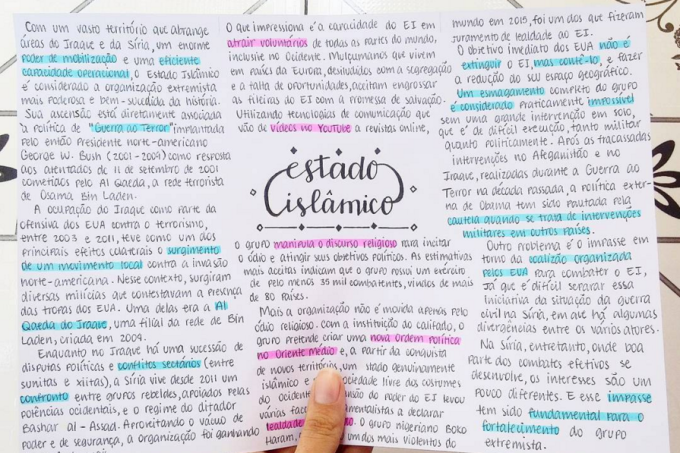 Com um vasto território que abrange
áreas do Iraque e da Síria, um enorme
poder de mobilização e uma eficiente
capacidade operacional, o Estado Islâmico
é considerado a organização extremista
mais poderosa e bem-sucedida da história.
Sua ascensão está diretamente associada
à política de "Guerra ao Terror" implantada
pelo então Presidente norte-americano
George W. Bush (2001-2009) como resposta
aos atentados de 11 de setembro de 2001
cometidos pelo Al Qaeda, a rede terrorista
de Osama Bin Laden.
A ocupação do Iraque como parte da
ofensiva dos EUA contra o terrorismo,
entre 2003 e 2011, teve como um dos
principais efeitos colaterais o surgimento
de um movimento local contra a invasão
norte-americana. Nesse contexto, surgiram
diversas milícias que contestavam a presença
das tropas dos EUA. Uma delas era a Al
Qaeda do Iraque, uma filial da rede de Bin
Laden, criada em 2004.
Enquanto no Iraque há uma sucessão de
disputas políticas e conflitos sectários (entre
sunitas e xiitas), a Síria vive desde 2011 um
confronto entre grupos rebeldes, apoiados pelas
potências ocidentais, e o regime do ditador
Bashar al-Assad. Aproveitando o vácuo de
poder e de segurança, a organização foi ganhando
O que impressiona é a capacidade do EI em
atrair voluntários de todas as partes do mundo,
inclusive no Ocidente. Mulçumanos que vivem
em países da Europa, desiludidos com a segregação
e a falta de oportunidades, aceitam engrossar
as fileiras do EI com a promessa de salvação.
Utilizando tecnologias de comunicação que
vão de vídeos no YouTube a revistas online,
estado
islâmico
o grupo manipula o discurso religioso para incitar
o ódio e atingir seus objetivos políticos. As estimativas
mais aceitas indicam que o grupo possui um exército
de pelo menos 35 mil combatentes, vindos de mais
de 80 países.
Mais a organização não é movida apenas pelo
ódio religioso. com a instituição do califado, o
grupo pretende criar uma nova Ordem Política
no Oriente Médio e, a partir da conquista
de novos territórios, um estado genuinamente
islâmico e sociedade livre dos costumes
do ocidente. do poder do EI levou
várias facções fundamentalistas a declarar
lealdade O grupo nigeriano Boko
Haram, um dos mais violentos do
mundo em 2015, foi um dos que fizeram
juramento de lealdade ao EI.
O objetivo imediato dos EUA não é
extinguir o EI, mas contê-lo, e fazer
a redução do seu espaço geográfico.
Um esmagamento completo do grupo
é considerado praticamente impossível
sem uma grande intervenção em solo,
que é de difícil execução, tanto militar
quanto politicamente. Após as fracassadas
intervenções no Afeganistão e no
Iraque, realizadas durante a Guerra ao
Terror na década passada, a política exter-
na de Obama tem sido pautada pela
cautela quando se trata de intervenções
militares em outros países.
Outro problema é o impasse em
torno da coalizão organizada
pelos EUA para combater o EI,
já que é difícil separar essa
iniciativa da situação da guerra
civil na Síria, em que há algumas
divergências entre os vários atores.
Na Síria, entretanto, onde boa
parte dos combates efetivos se
desenvolve, os interesses são um
pouco diferentes. E esse impasse
tem sido fundamental para o
fortalecimento do grupo
extremista.